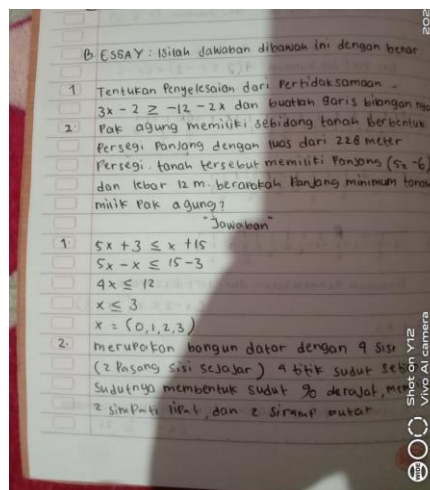 B ESSAY : Isilah Jawaban dibawah ini dengan benar
1 Tentukan Penyelesaian dari Pertidaksamaan
3x - 2 ≥ -12 - 2x dan buatlah garis bilangan nya
2 Pak agung memiliki sebidang tanah berbentuk
Persegi Panjang dengan luas dari 228 meter
Persegi. tanah tersebut memiliki Panjang (5x - 6)
dan lebar 12 m. berapakah Panjang minimum tanah
milik Pak agung?
"Jawaban"
1. 5x + 3 ≤ x + 15
5x - x ≤ 15 - 3
4x ≤ 12
x ≤ 3
x = (0, 1, 2, 3)
2. merupakan bangun datar dengan 4 sisi
(2 Pasang sisi sejajar) 4 titik sudut
Sudutnya membentuk sudut 90 derajat,
2 lipat, dan 2 putar
Shot on Y12
Vivo AI camera
202